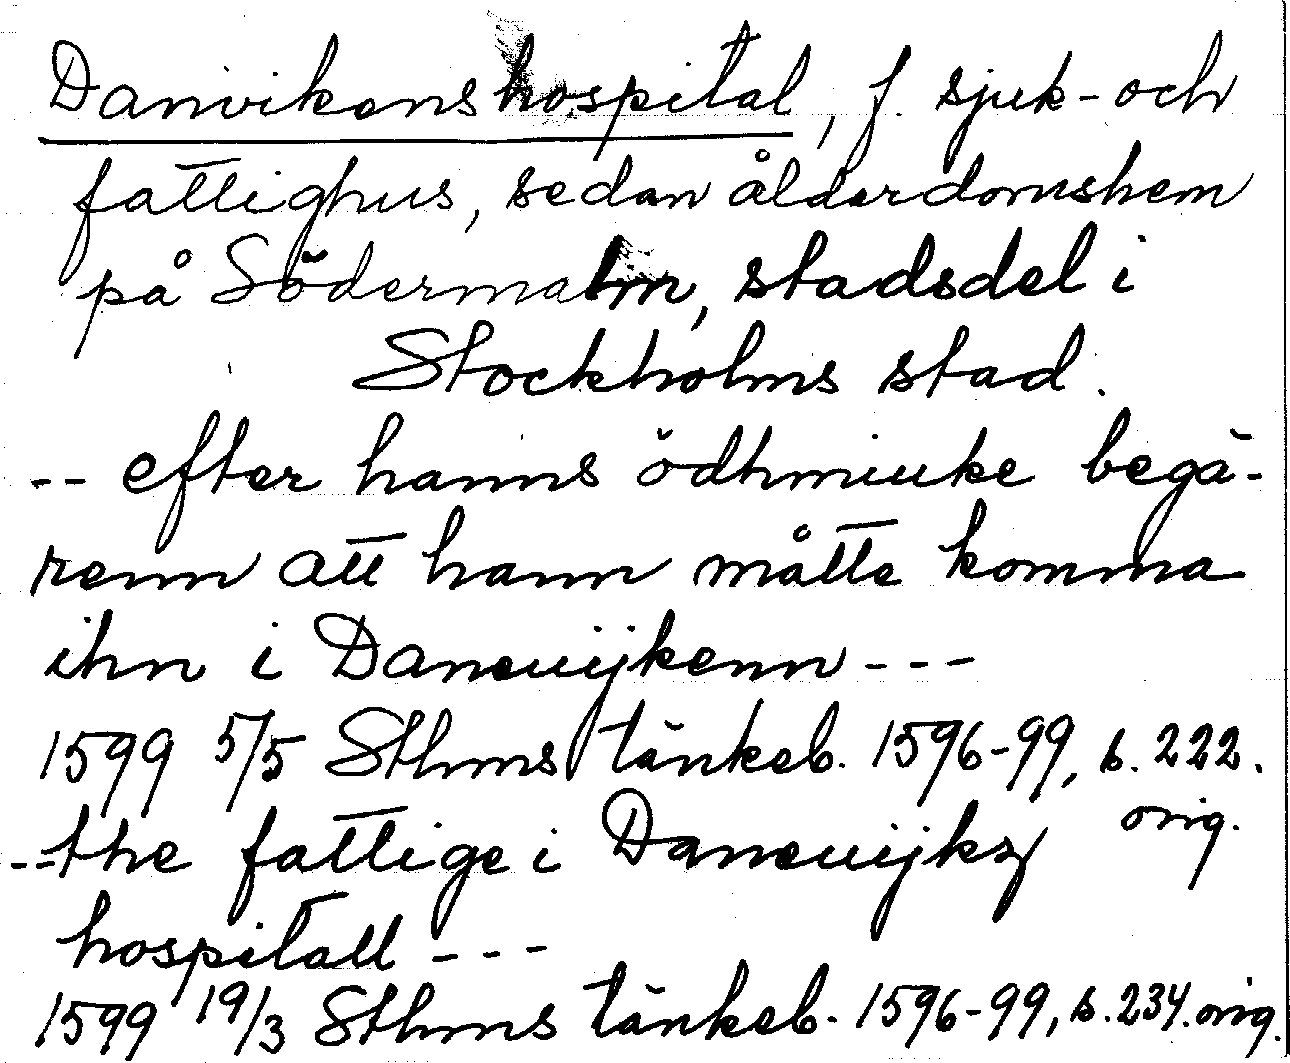 Danvikens hospital, f. sjuk- och
fattighus, sedan ålderdomshem
på Södermalm, stadsdel i
Stockholms stad.
-- efter hanns ödhmiuke begä-
renn att hann måtte komma
ihn i Daneuijkenn ---
1599 5/5 Sthms tänkeb. 1596-99, s. 222.
orig.
-- the fattige i Daneuijkz
hospitall ---
1599 19/3 Sthms tänkeb. 1596-99, s. 234. orig.